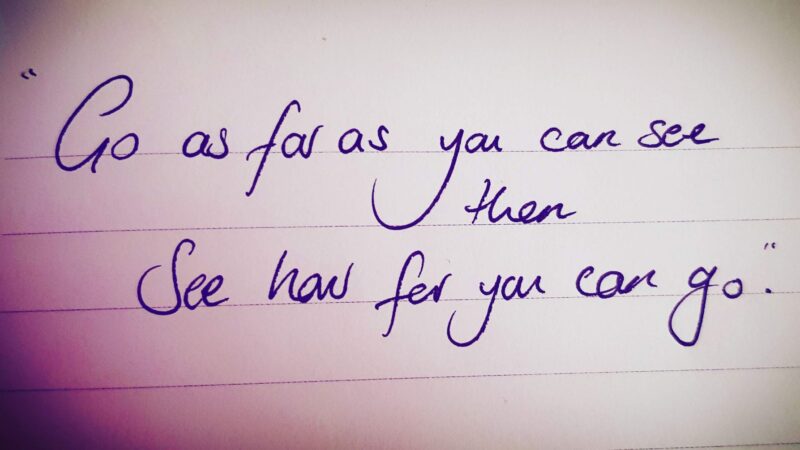 "Go as far as you can see
then
See how far you can go."